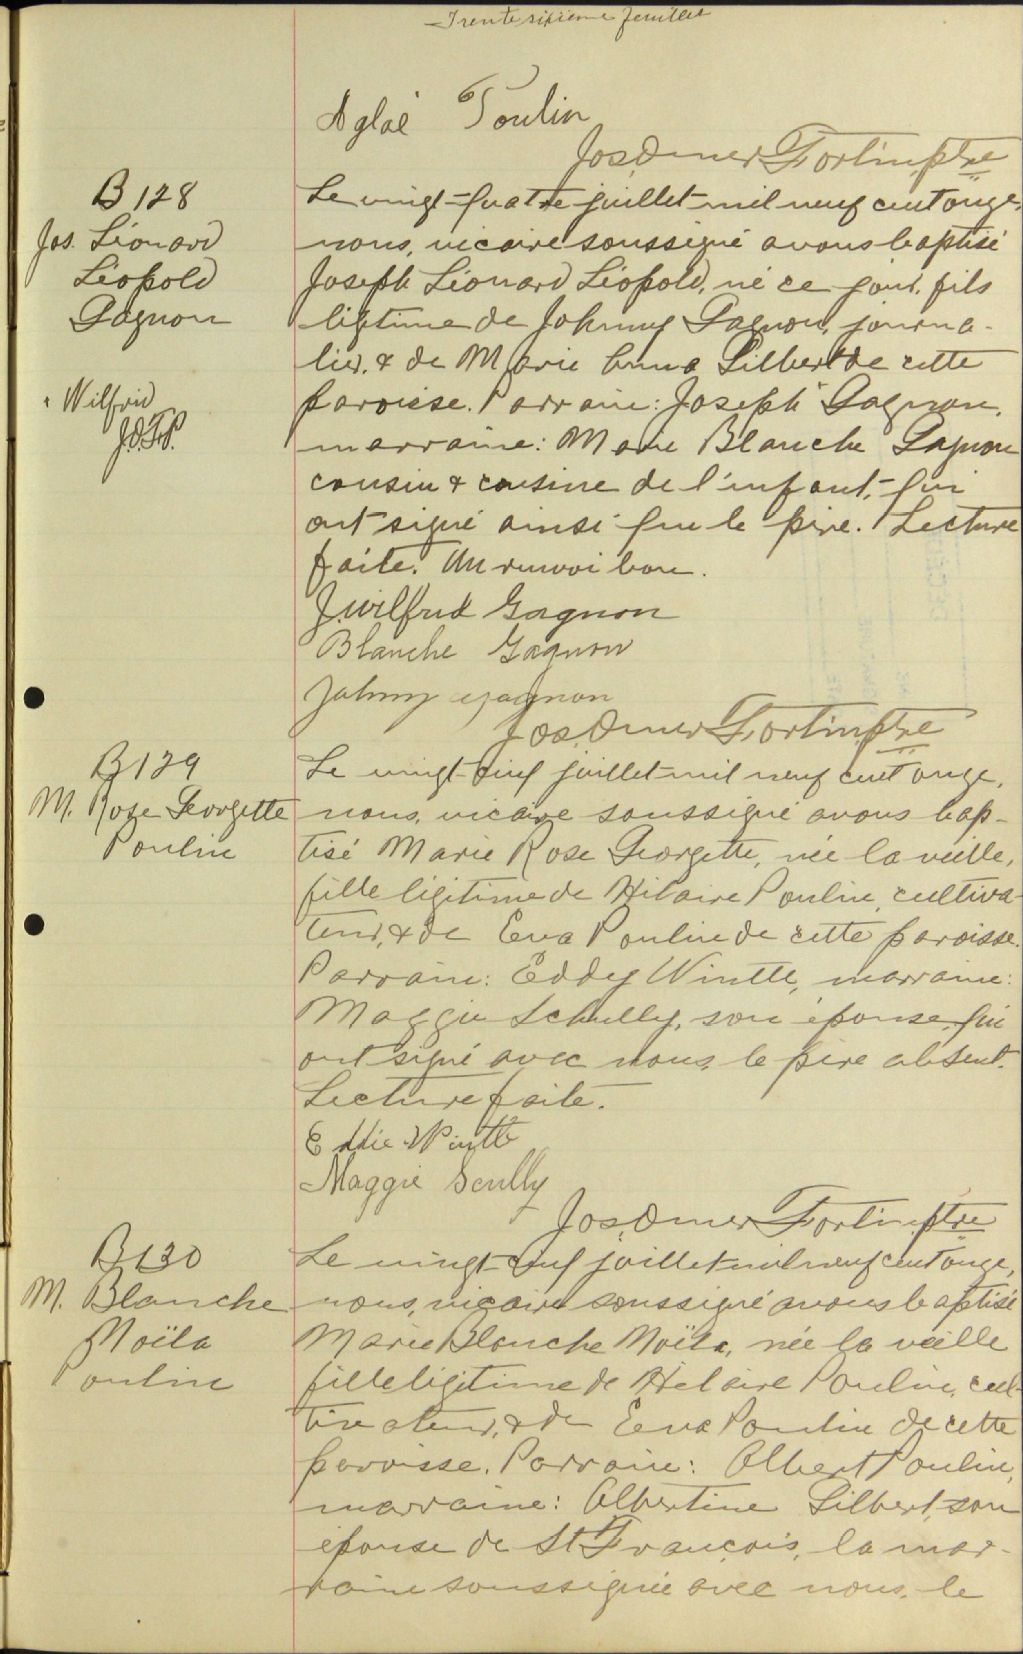 Trente sixième feuillet
Aglaé Poulin
Jos. Omer Fortin, ptre
B 128
Jos. Léonard
Léopold
Gagnon
+ Wilfrid
J.O.F.P.
Le vingt-quatre juillet mil neuf cent onze,
nous, vicaire soussigné avons baptisé
Joseph Léonard Léopold, né ce jour, fils
légitime de Johnny Gagnon, journa-
lier, & de Marie Anna Gilbert de cette
paroisse. Parrain: Joseph + Gagnon,
marraine: Marie Blanche Gagnon
cousin & cousine de l'enfant, qui
ont signé ainsi que le père. Lecture
faite. Un renvoi bon.
J. Wilfrid Gagnon
Blanche Gagnon
Johnny Gagnon
Jos. Omer Fortin, ptre
B 129
M. Rose Georgette
Poulin
Le vingt-cinq juillet mil neuf cent onze,
nous, vicaire soussigné avons bap-
tisé Marie Rose Georgette, née la veille,
fille légitime de Hilaire Poulin, cultiva-
teur, & de Eva Poulin de cette paroisse.
Parrain: Eddey Wintle, marraine:
Maggie Schully, son épouse, qui
ont signé avec nous, le père absent.
Lecture faite.
Eddie Wintle
Maggie Scully
Jos. Omer Fortin, ptre
B 130
M. Blanche
Noïla
Poulin
Le vingt-cinq juillet mil neuf cent onze,
nous, vicaire soussigné avons baptisé
Marie Blanche Noïla, née la veille
fille légitime de Hilaire Poulin, cul-
tivateur, & de Eva Poulin de cette
paroisse. Parrain: Albert Poulin,
marraine: Albertine Gilbert, son
épouse de St François, la mar-
raine soussignée avec nous, le